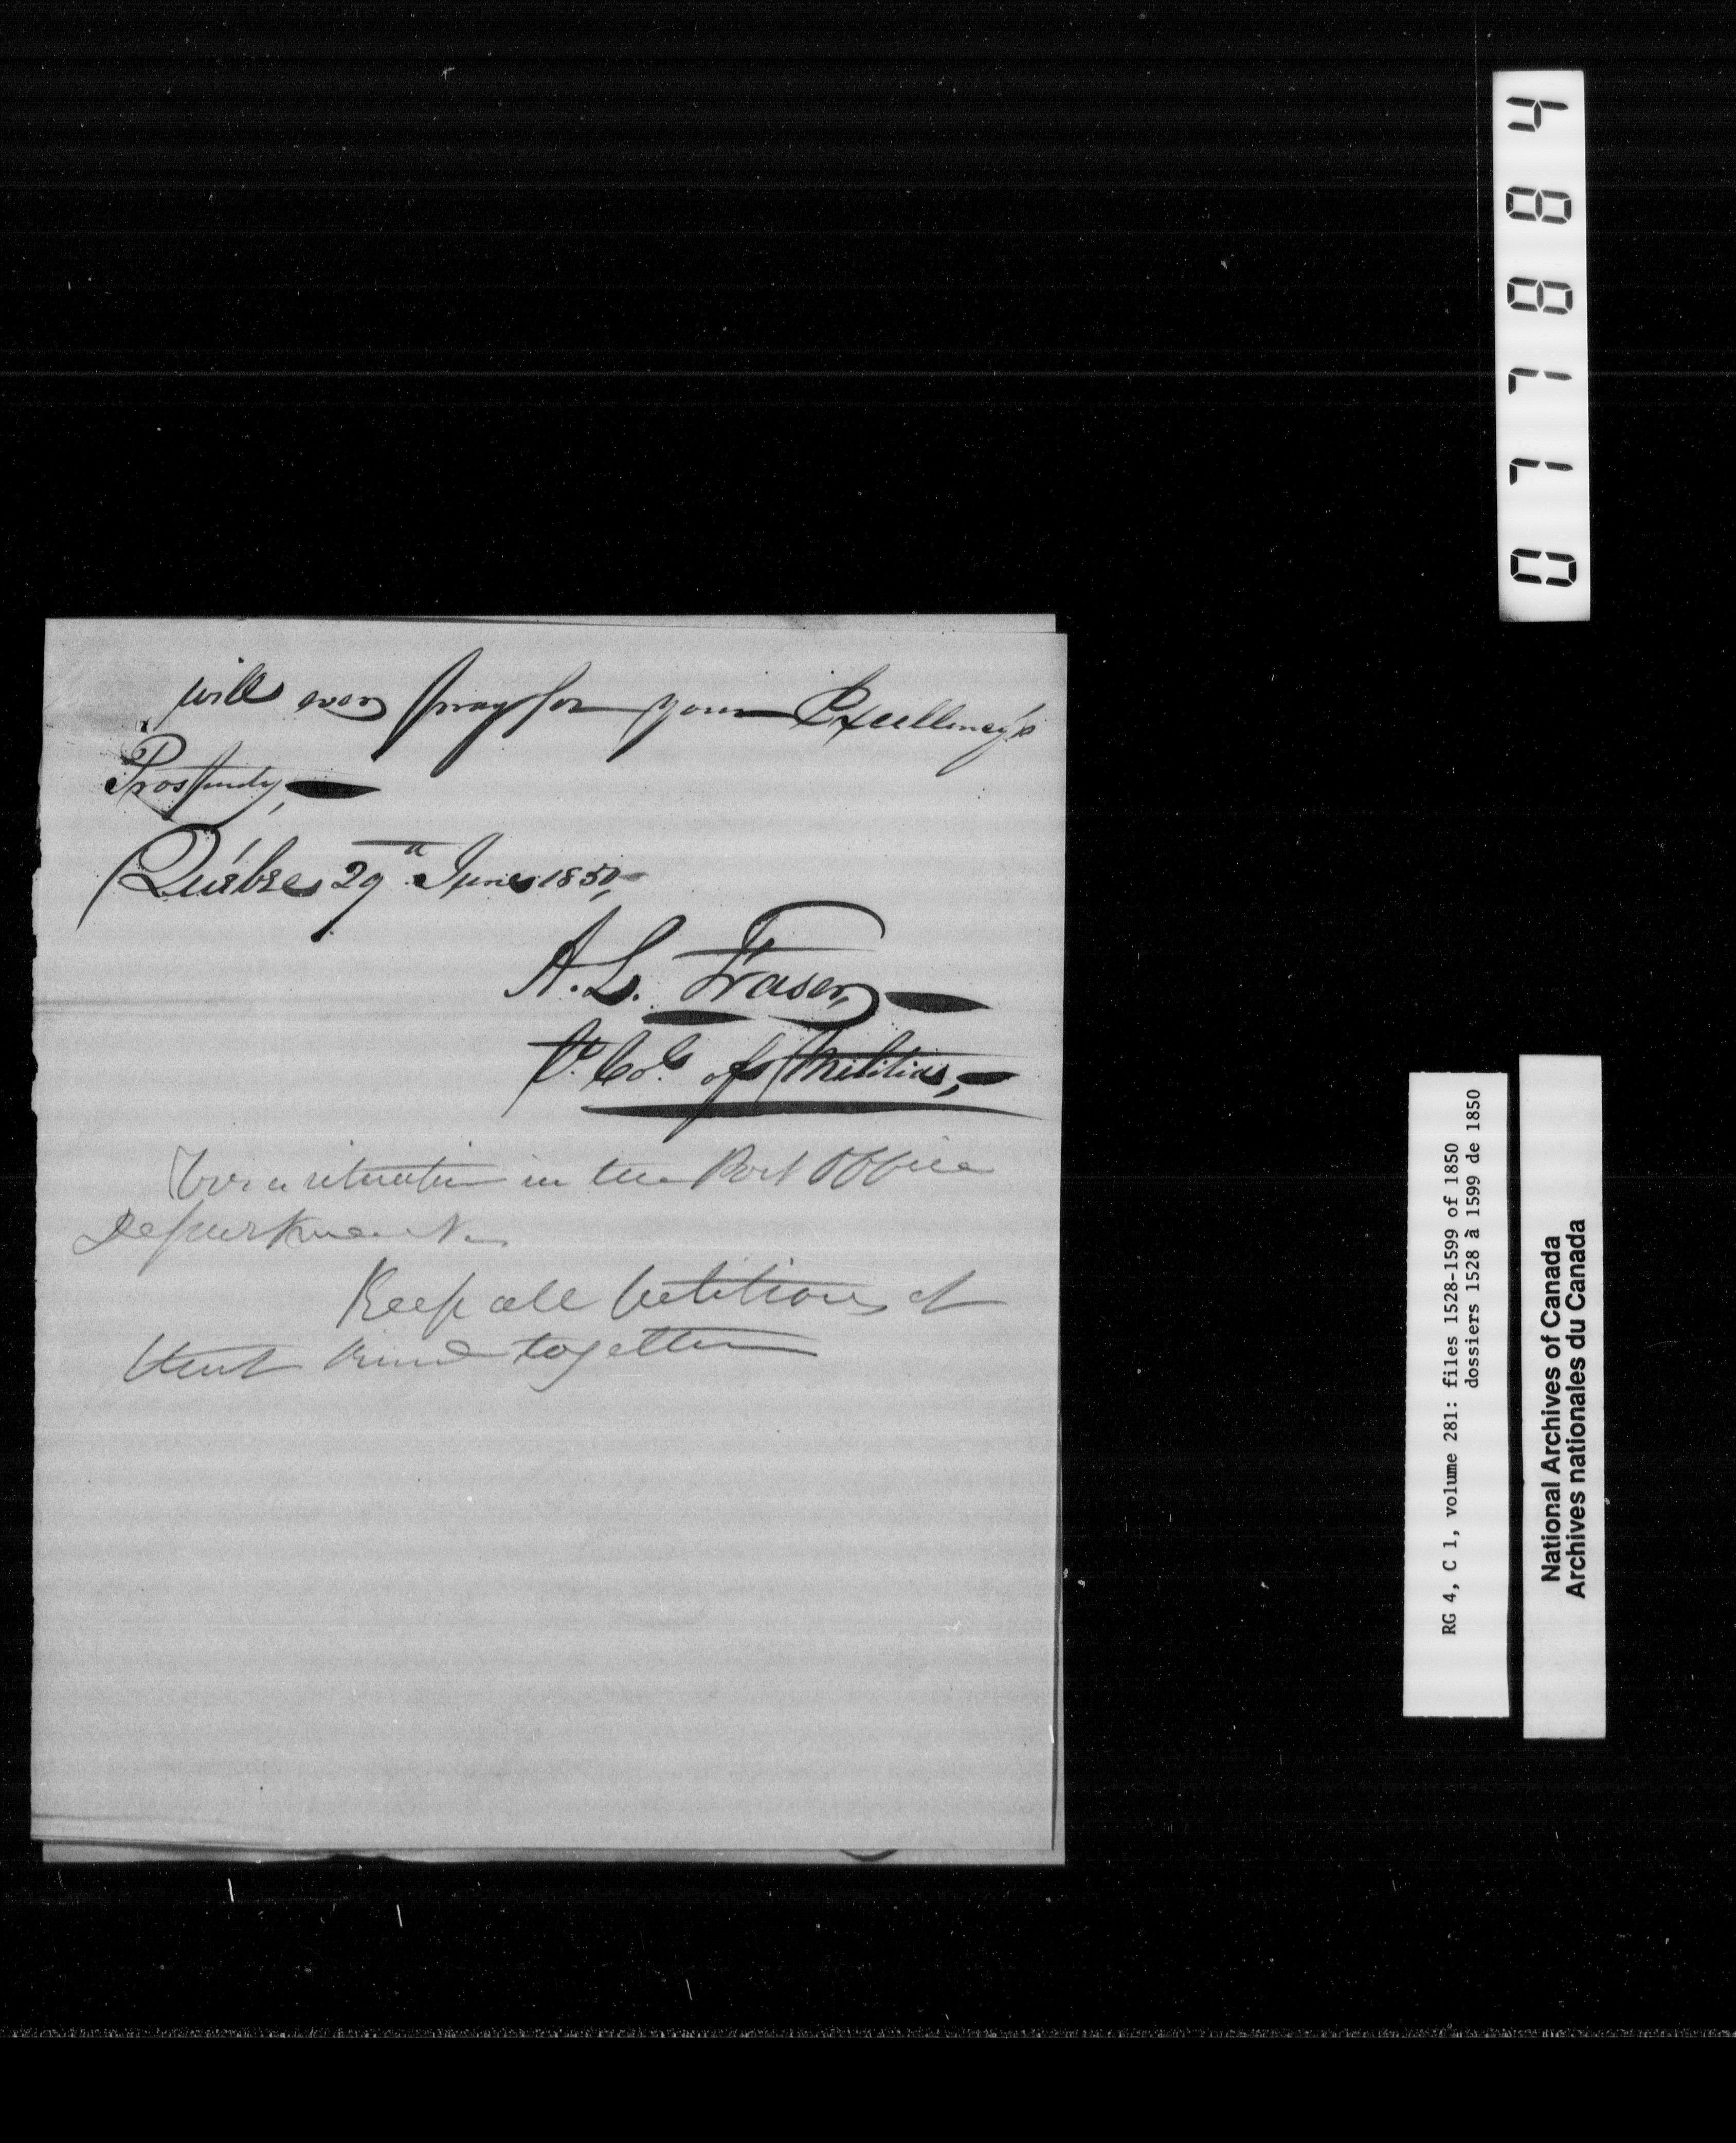 will ever pray for your Excellency's
Prosperity,
Québec 29th June 1850,
A. L. Fraser,
Lt. Col. of Militia,
For a situation in the Post Office
Department
Keep all petitions of
that kind together
077884
RG 4, C 1, volume 281: files 1528-1599 of 1850
dossiers 1528 à 1599 de 1850
National Archives of Canada
Archives nationales du Canada